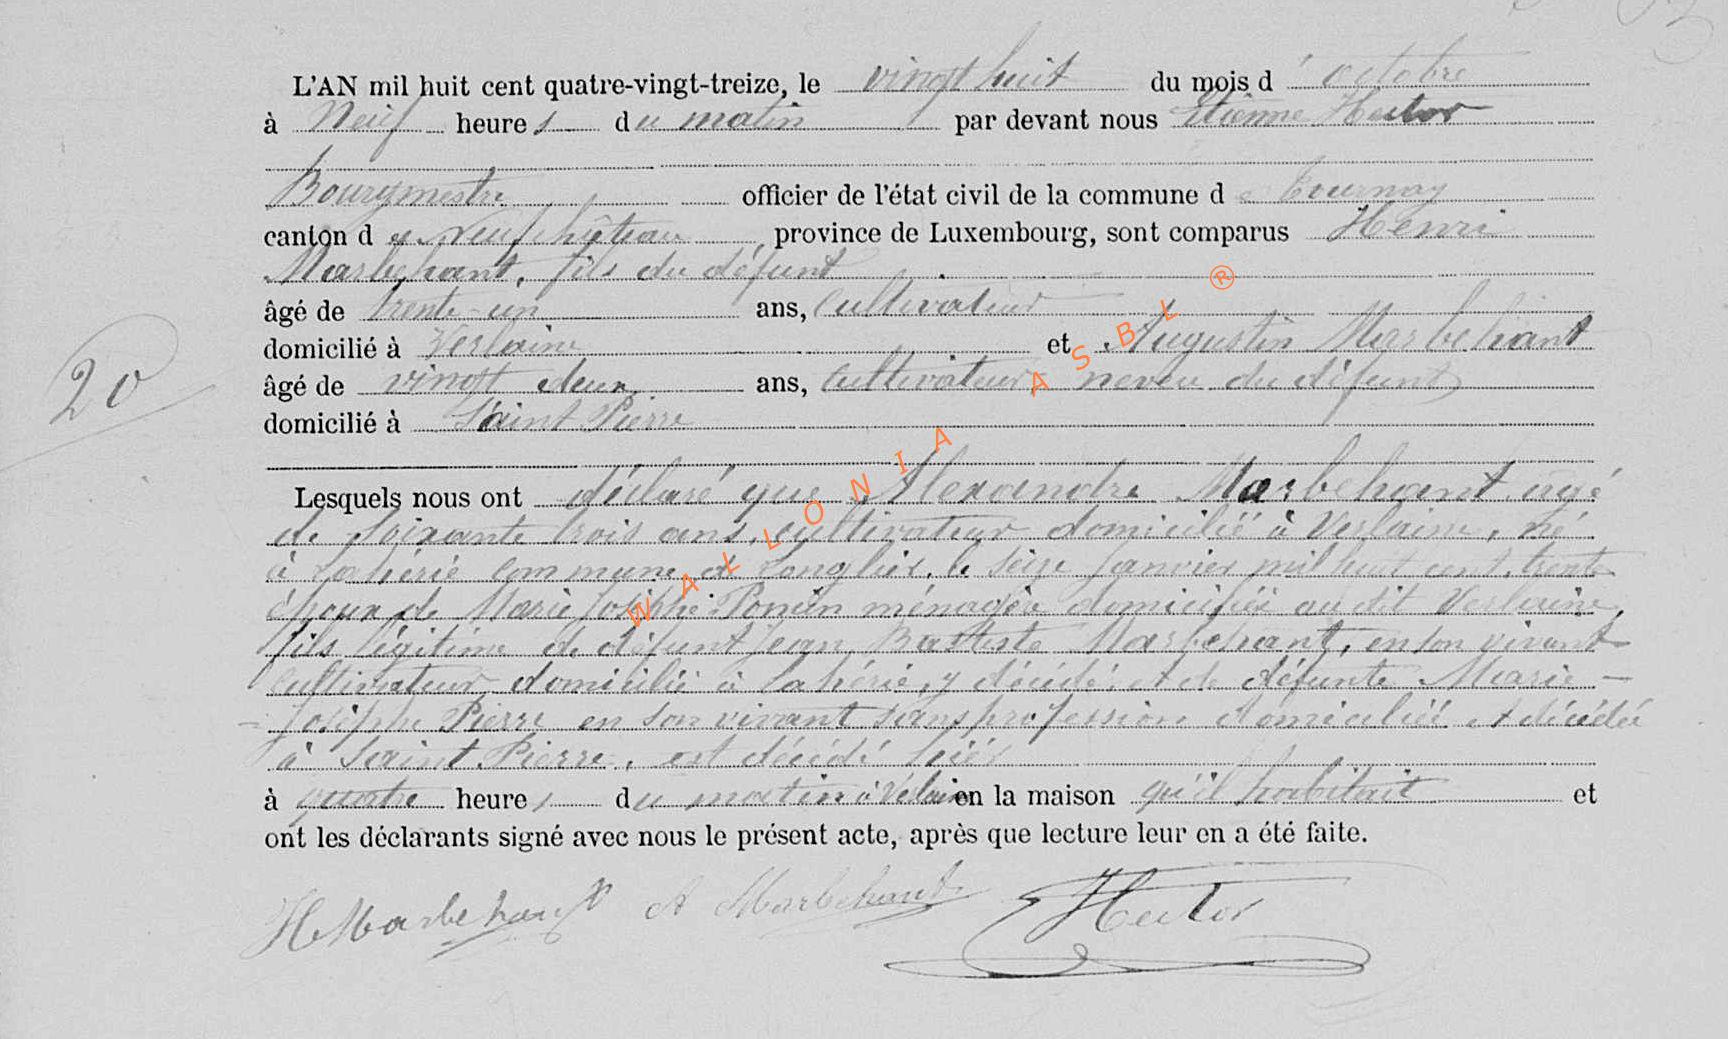 L'AN mil huit cent quatre-vingt-treize, le vingt huit du mois d'octobre
à Neuf heures du matin par devant nous Etienne Hector
Bourgmestre officier de l'état civil de la commune de Tournay
canton de Neufchâteau province de Luxembourg, sont comparus Henri
Marbehant, fils du défunt
âgé de trente-un ans, Cultivateur
domicilié à Verlaine et Augustin Marbehant
20
âgé de vingt deux ans, Cultivateur neveu du défunt
domicilié à Saint Pierre
Lesquels nous ont déclaré que Alexandre Marbehant âgé
de soixante trois ans, cultivateur domicilié à Verlaine, né
à Lahérie commune de Longlier, le seize Janvier mil huit cent trente
époux de Marie Josèphe Poncin ménagère domiciliée audit Verlaine,
fils légitime de défunt Jean Baptiste Marbehant, en son vivant
cultivateur domicilié à Lahérie, y décédé, et de défunte Marie –
– Josèphe Pierre en son vivant sans profession domiciliée et décédée
à Saint Pierre, est décédé hier
à quatre heures du matin à Verlaine en la maison qu'il habitait et
ont les déclarants signé avec nous le présent acte, après que lecture leur en a été faite.
H Marbehant A Marbehant Hector
WALLONIA ASBL ®